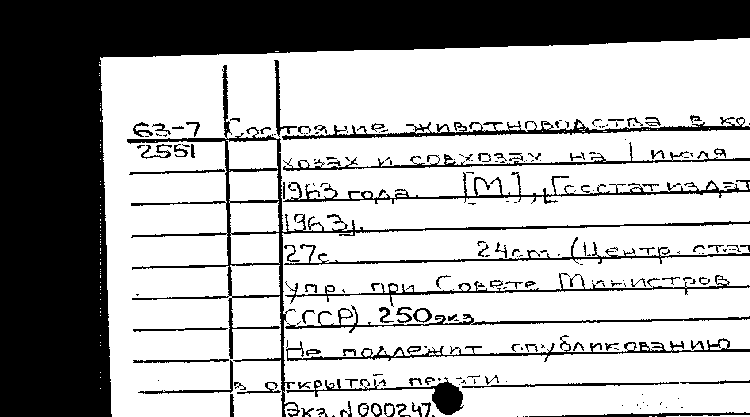 63-7 Состояние животноводства в ко
2551
хозах и совхозах на 1 июля
1963 года. [М.], [Госстатиздат
1963].
27с. 24см. (Центр. стат
упр. при Совете Министров
СССР). 250экз.
Не подлежит опубликованию
в открытой печати.
Экз. N 000247.